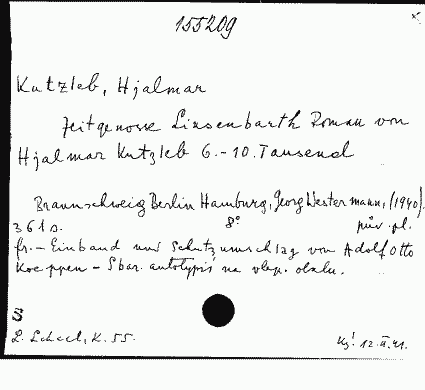 155209
Kutzleb, Hjalmar
Zeitgenosse Linsenbarth Roman von
Hjalmar Kutzleb 6.-10. Tausend
Braunschweig Berlin Hamburg, Georg Westermann, (1940).
361 s. 8° pův. pl.
fr. - Einband und Schutzumschlag von Adolf Otto
Koeppen - Sbar. autotypií na vlep. obálu.
S
K. 55. 12. II. 41.